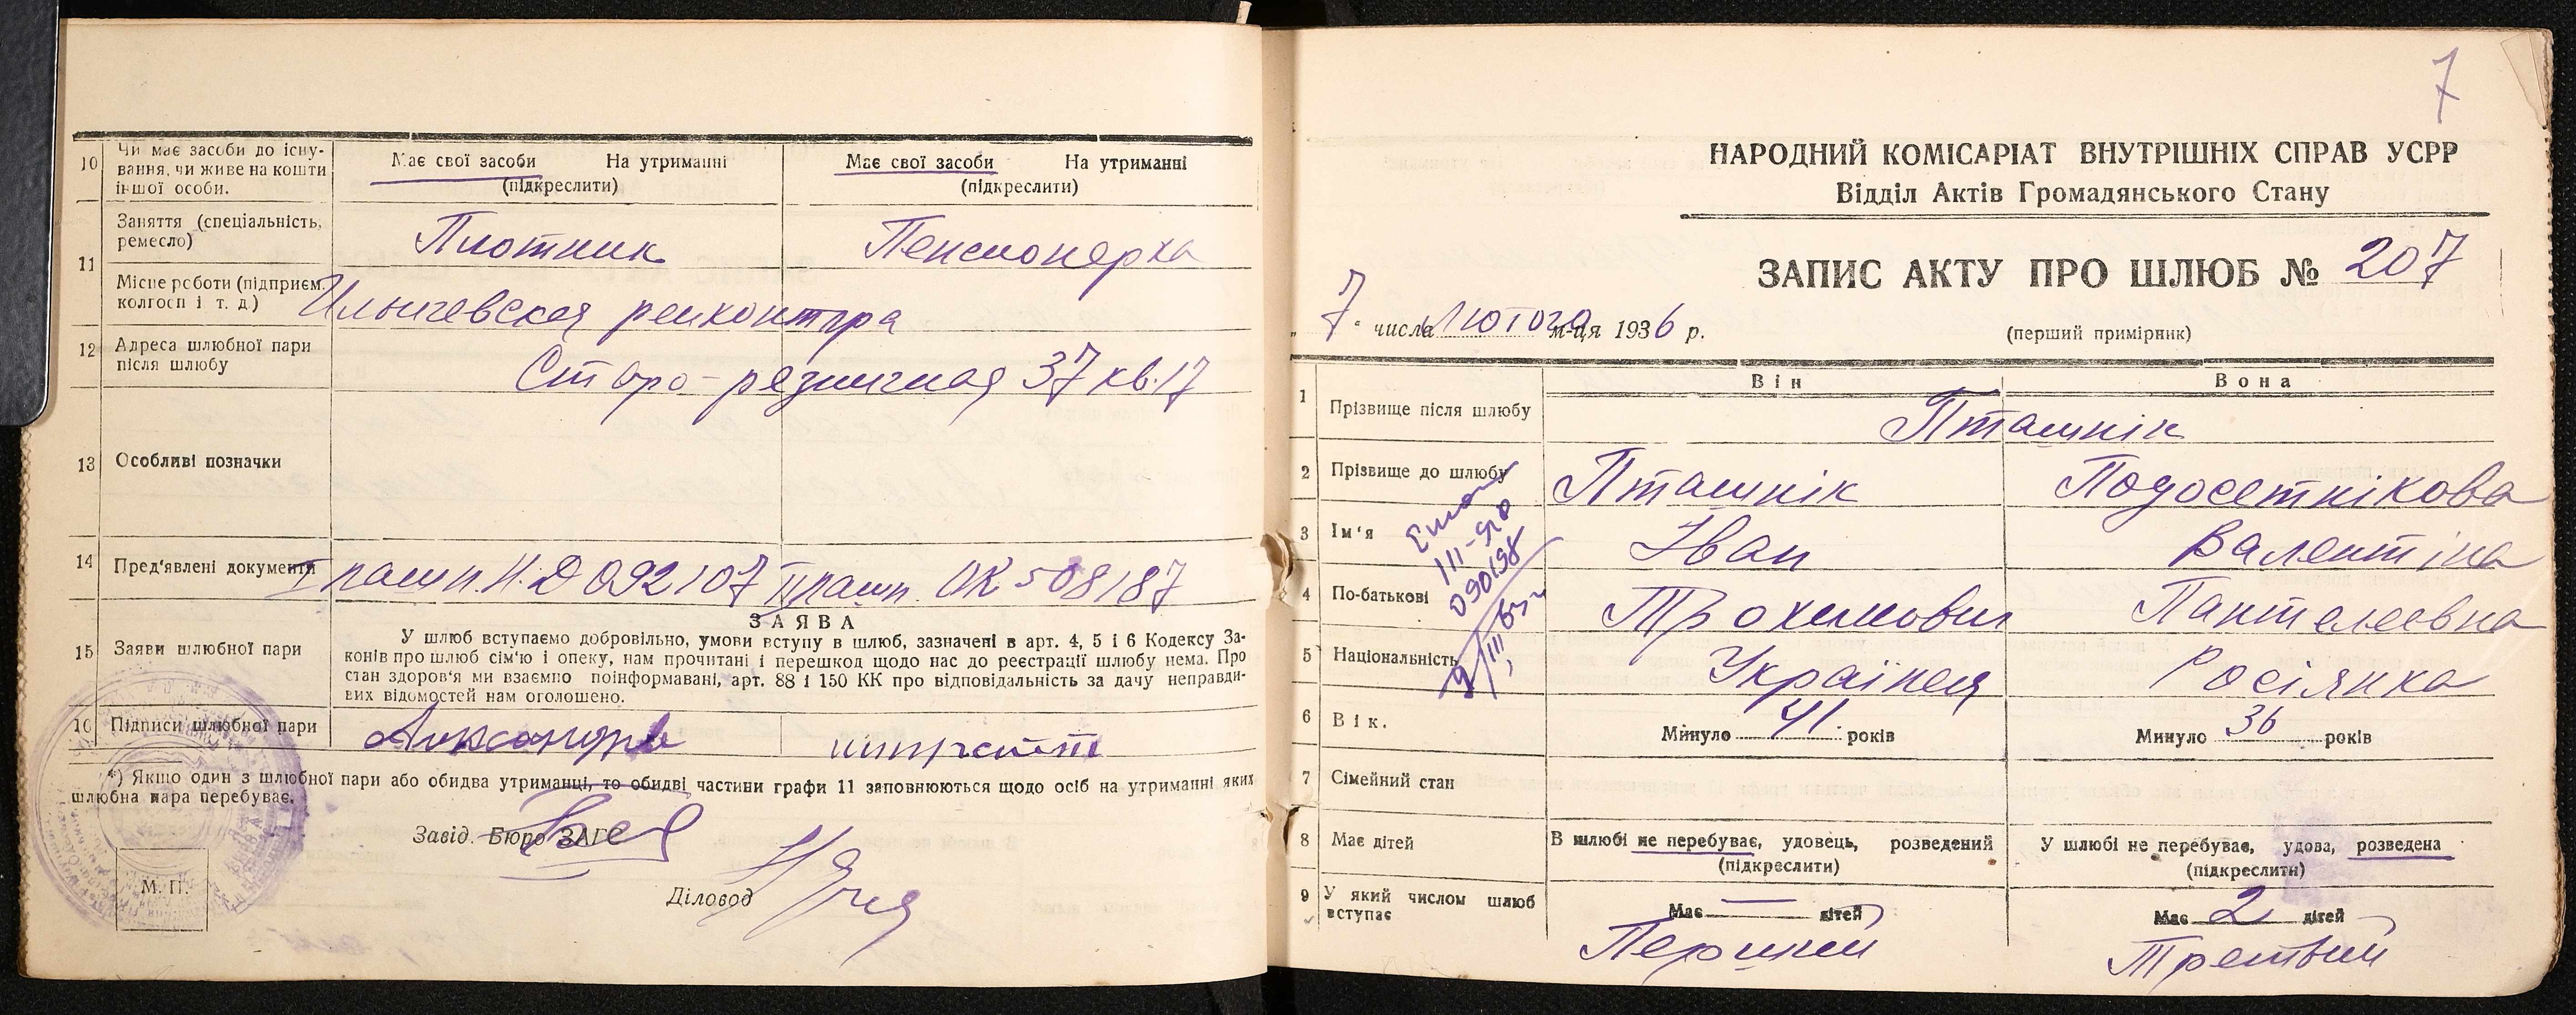 10 Чи має засоби до існу-
вання, чи живе на кошти
іншої особи.
Має свої засоби На утриманні
(підкреслити)
Має свої засоби На утриманні
(підкреслити)
11 Заняття (спеціальність,
ремесло)
Плотник
Пенсионерка
Місце роботи (підприєм.
колгосп і т. д.)
12 Адреса шлюбної пари
після шлюбу
Старо-резничная 37 кв. 17
13 Особливі позначки
14 Пред'явлені документи
I пашп. Н.Д 092107 II пашп. ОК 508187
ЗАЯВА
15 Заяви шлюбної пари
У шлюб вступаємо добровільно, умови вступу в шлюб, зазначені в арт. 4, 5 і 6 Кодексу За-
конів про шлюб сім'ю і опеку, нам прочитані і перешкод щодо нас до реєстрації шлюбу нема. Про
стан здоров'я ми взаємно поінформавані, арт. 88 і 150 КК про відповідальність за дачу неправди-
вих відомостей нам оголошено.
16 Підписи шлюбної пари
*) Якщо один з шлюбної пари або обидва утриманці, то обидві частини графи 11 заповнюються щодо осіб на утриманні яких
шлюбна пара перебуває.
Завід. Бюро ЗАГС
Діловод
М. П.
7
НАРОДНИЙ КОМІСАРІАТ ВНУТРІШНІХ СПРАВ УСРР
Відділ Актів Громадянського Стану
ЗАПИС АКТУ ПРО ШЛЮБ № 207
„ 7 " числа Лютого м-ця 1936 р.
(перший примірник)
Він Вона
1 Прізвище після шлюбу
Пташнік
2 Прізвище до шлюбу
Пташнік
Подосетнікова
3 Ім'я
Іван
Валентіна
4 По-батькові
Трохимович
Пантелеевна
III-
090198
5 Національність
Українец
Росіянка
6 Вік.
Минуло 41 років
Минуло 36 років
7 Сімейний стан
8 Має дітей
В шлюбі не перебуває, удовець, розведений
(підкреслити)
У шлюбі не перебуває, удова, розведена
(підкреслити)
9 У який числом шлюб
вступає
Має — дітей
Має 2 дітей
Перший
Третьий